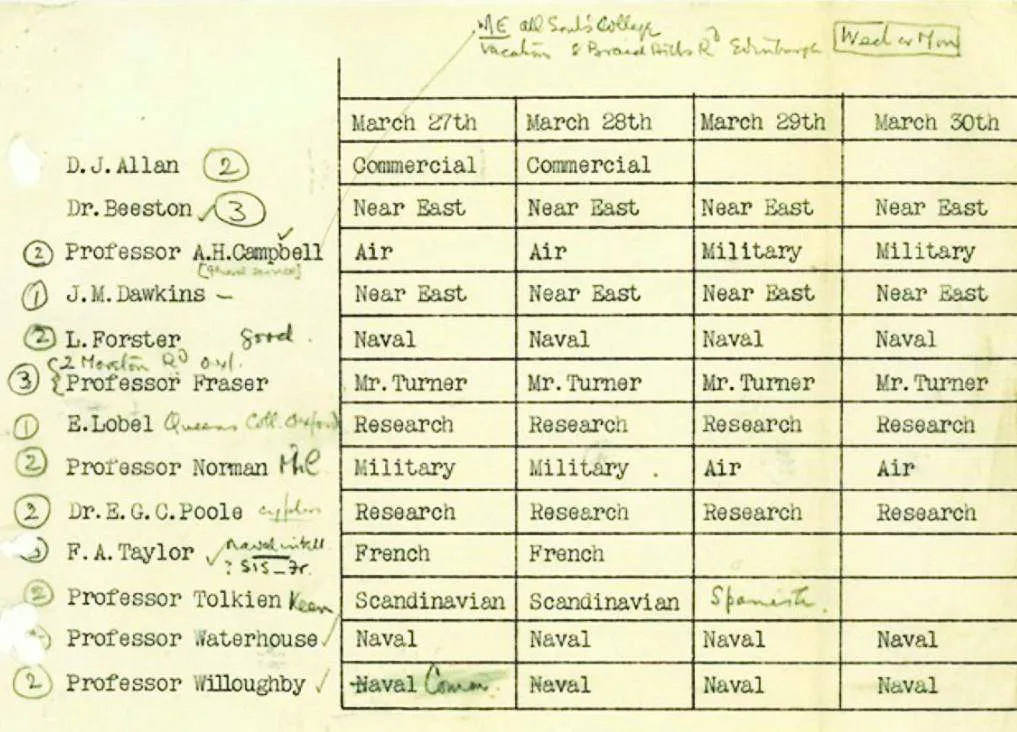 ME All Soul's College
vacation 8 Braid Hills Rd Edinburgh
Wed or Mon
March 27th March 28th March 29th March 30th
D.J.Allan 2 Commercial Commercial
Dr.Beeston ✓ 3 Near East Near East Near East Near East
2 Professor A.H.Campbell ✓ Air Air Military Military
1 J.M.Dawkins – Near East Near East Near East Near East
2 L.Forster good. Naval Naval Naval Naval
2 Rd Oxf.
3 Professor Fraser Mr.Turner Mr.Turner Mr.Turner Mr.Turner
1 E.Lobel Queens Coll. Oxford Research Research Research Research
2 Professor Norman Military Military . Air Air
2 Dr.E.G.C.Poole Research Research Research Research
F.A.Taylor ✓ Naval intell French French
? SIS – Fr.
2 Professor Tolkien Keen Scandinavian Scandinavian Spanish.
Professor Waterhouse ✓ Naval Naval Naval Naval
2 Professor Willoughby ✓ Naval Comm. Naval Naval Naval